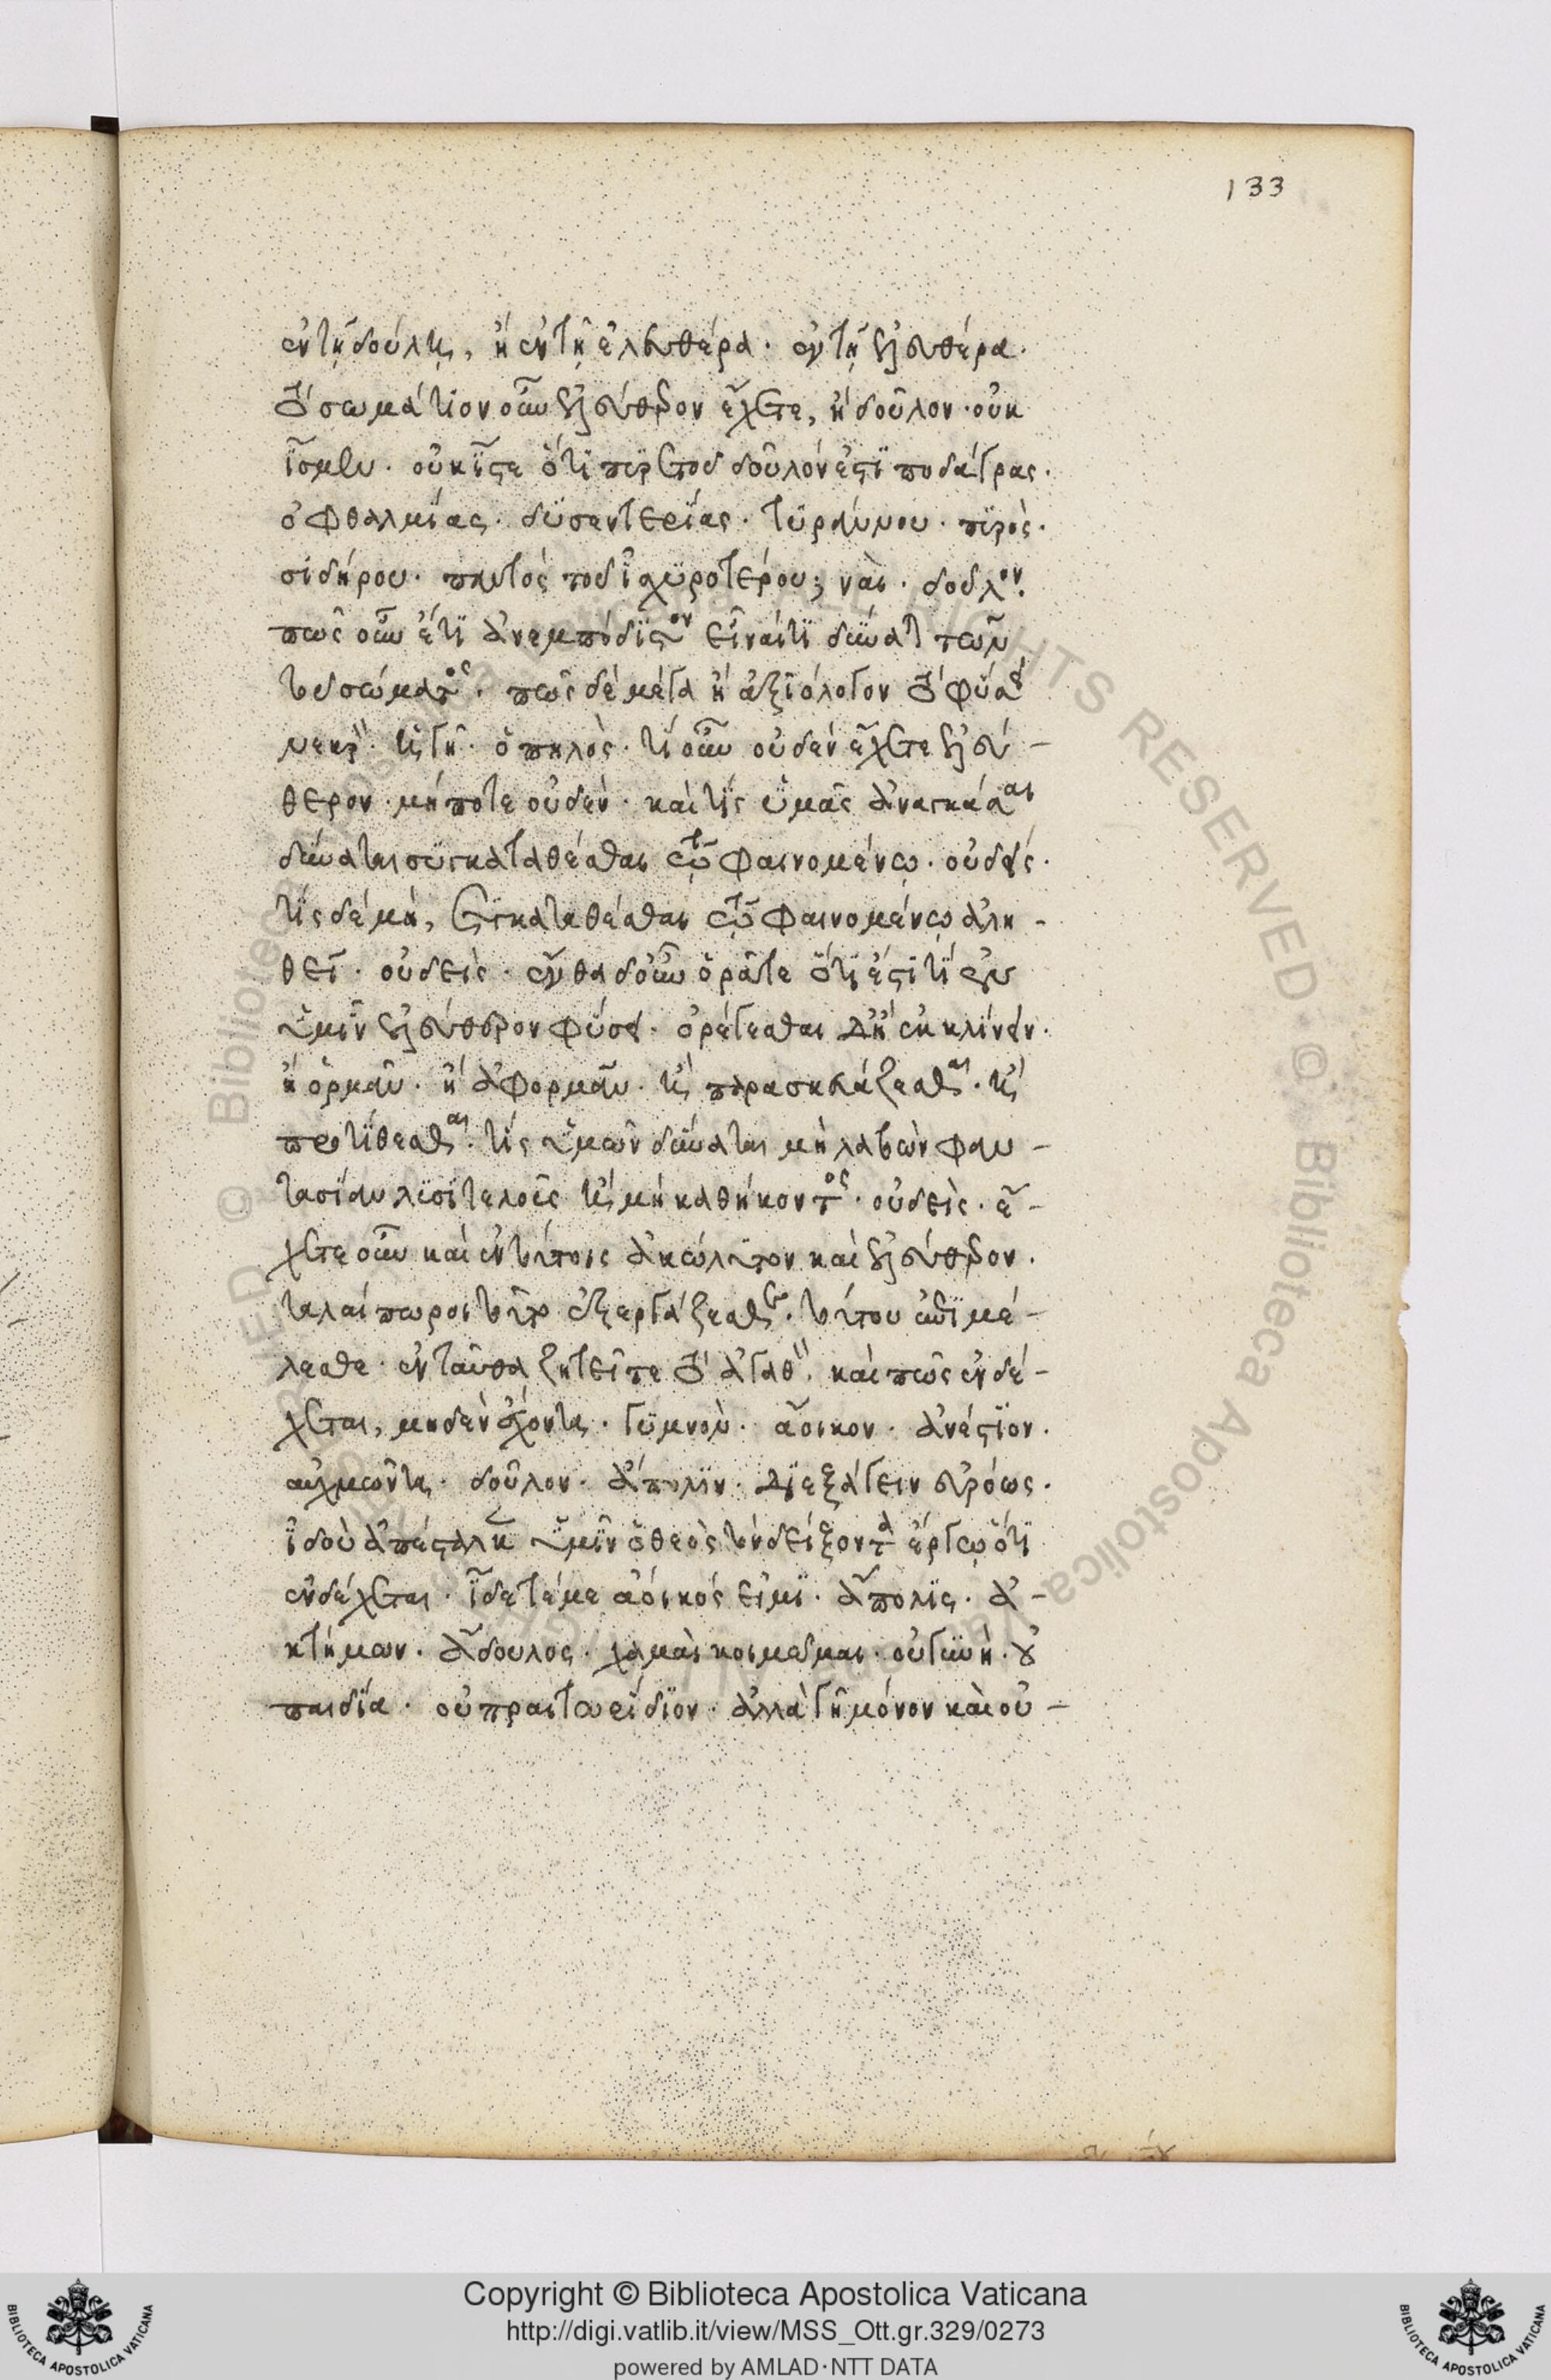 133
ἐν τῇ δούλῃ, ἢ ἐν τῇ ἐλευθέρα· ἐν τῇ ἐλευθέρα·
τὸ σωμάτιον οὖν ἐλεύθερον ἔχετε, ἢ δοῦλον· οὐκ
ἴσμεν· οὐκ ἴστε ὅτι πυρετοῦ δοῦλόν ἐστι ποδάγρας·
ὀφθαλμίας· δυσεντερίας· τυράννου· πυρὸς·
σιδήρου· παντὸς τοῦ ἰσχυροτέρου; ναὶ· δοῦλον·
πῶς οὖν ἔτι ἀνεμπόδιστον εἶναί τι δύναται τῶν
τοῦ σώματος· πῶς δὲ μέγα ἢ ἀξιόλογον τὸ φύσει
νεκρὸν· ἡ γῆ· ὁ πηλὸς· τί οὖν οὐδὲν ἔχετε ἐλεύ-
θερον· μήποτε οὐδὲν· καὶ τίς ὑμᾶς ἀναγκάσαι
δύναται συγκαταθέσθαι τῷ φαινομένῳ· οὐδείς·
τίς δὲ μὴ, συγκαταθέσθαι τῷ φαινομένῳ ἀλη-
θεῖ· οὐδεὶς· ἔνθαδ' οὖν ὁρᾶτε ὅτι ἔστι τί ἐν
ὑμῖν ἐλεύθερον φύσει· ὀρέγεσθαι δ' ἢ ἐκκλίνειν·
ἢ ὁρμᾶν· ἢ ἀφορμᾶν· ἢ παρασκευάζεσθαι· ἢ
προτίθεσθαι· τίς ὑμῶν δύναται μὴ λαβὼν φαν-
τασίαν λυσιτελοῦς ἢ μὴ καθήκοντος· οὐδεὶς· ἔ-
χετε οὖν καὶ ἐν τούτοις ἀκώλυτον καὶ ἐλεύθερον·
ταλαίπωροι τοῦτο ἐξεργάζεσθε· τούτου ἐπιμέ-
λεσθε· ἐνταῦθα ζητεῖτε τὸ ἀγαθὸν· καὶ πῶς ἐνδέ-
χεται, μηδὲν ἔχοντα· γυμνὸν· ἄοικον· ἀνέστιον·
αὐχμῶντα· δοῦλον· ἄπολιν· διεξάγειν εὐρόως·
ἰδοὺ ἀπέσταλκεν ὑμῖν ὁ θεὸς τὸν δείξοντα ἔργῳ ὅτι
ἐνδέχεται· ἴδετέ με ἄοικός εἰμι· ἄπολις· ἀ-
κτήμων· ἄδουλος· χαμαὶ κοιμῶμαι· οὐ γυνὴ· οὐ
παιδία· οὐ πραιτωρίδιον· ἀλλὰ γῆ μόνον καὶ οὐ-
Copyright © Biblioteca Apostolica Vaticana
http://digi.vatlib.it/view/MSS_Ott.gr.329/0273
powered by AMLAD·NTT DATA